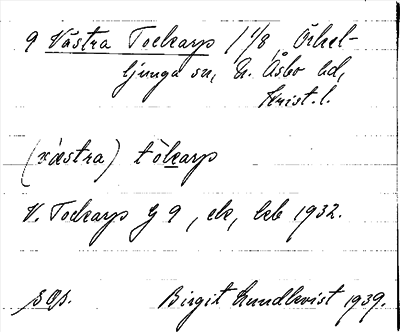 9 Västra Tockarp 1 1/8, Örkel-
ljunga sn, N. Åsbo hd,
Krist. l.
(västra) tòkarp
V. Tockarp G 9, ek, kb 1932.
sgs. Birgit Lundkvist 1939.